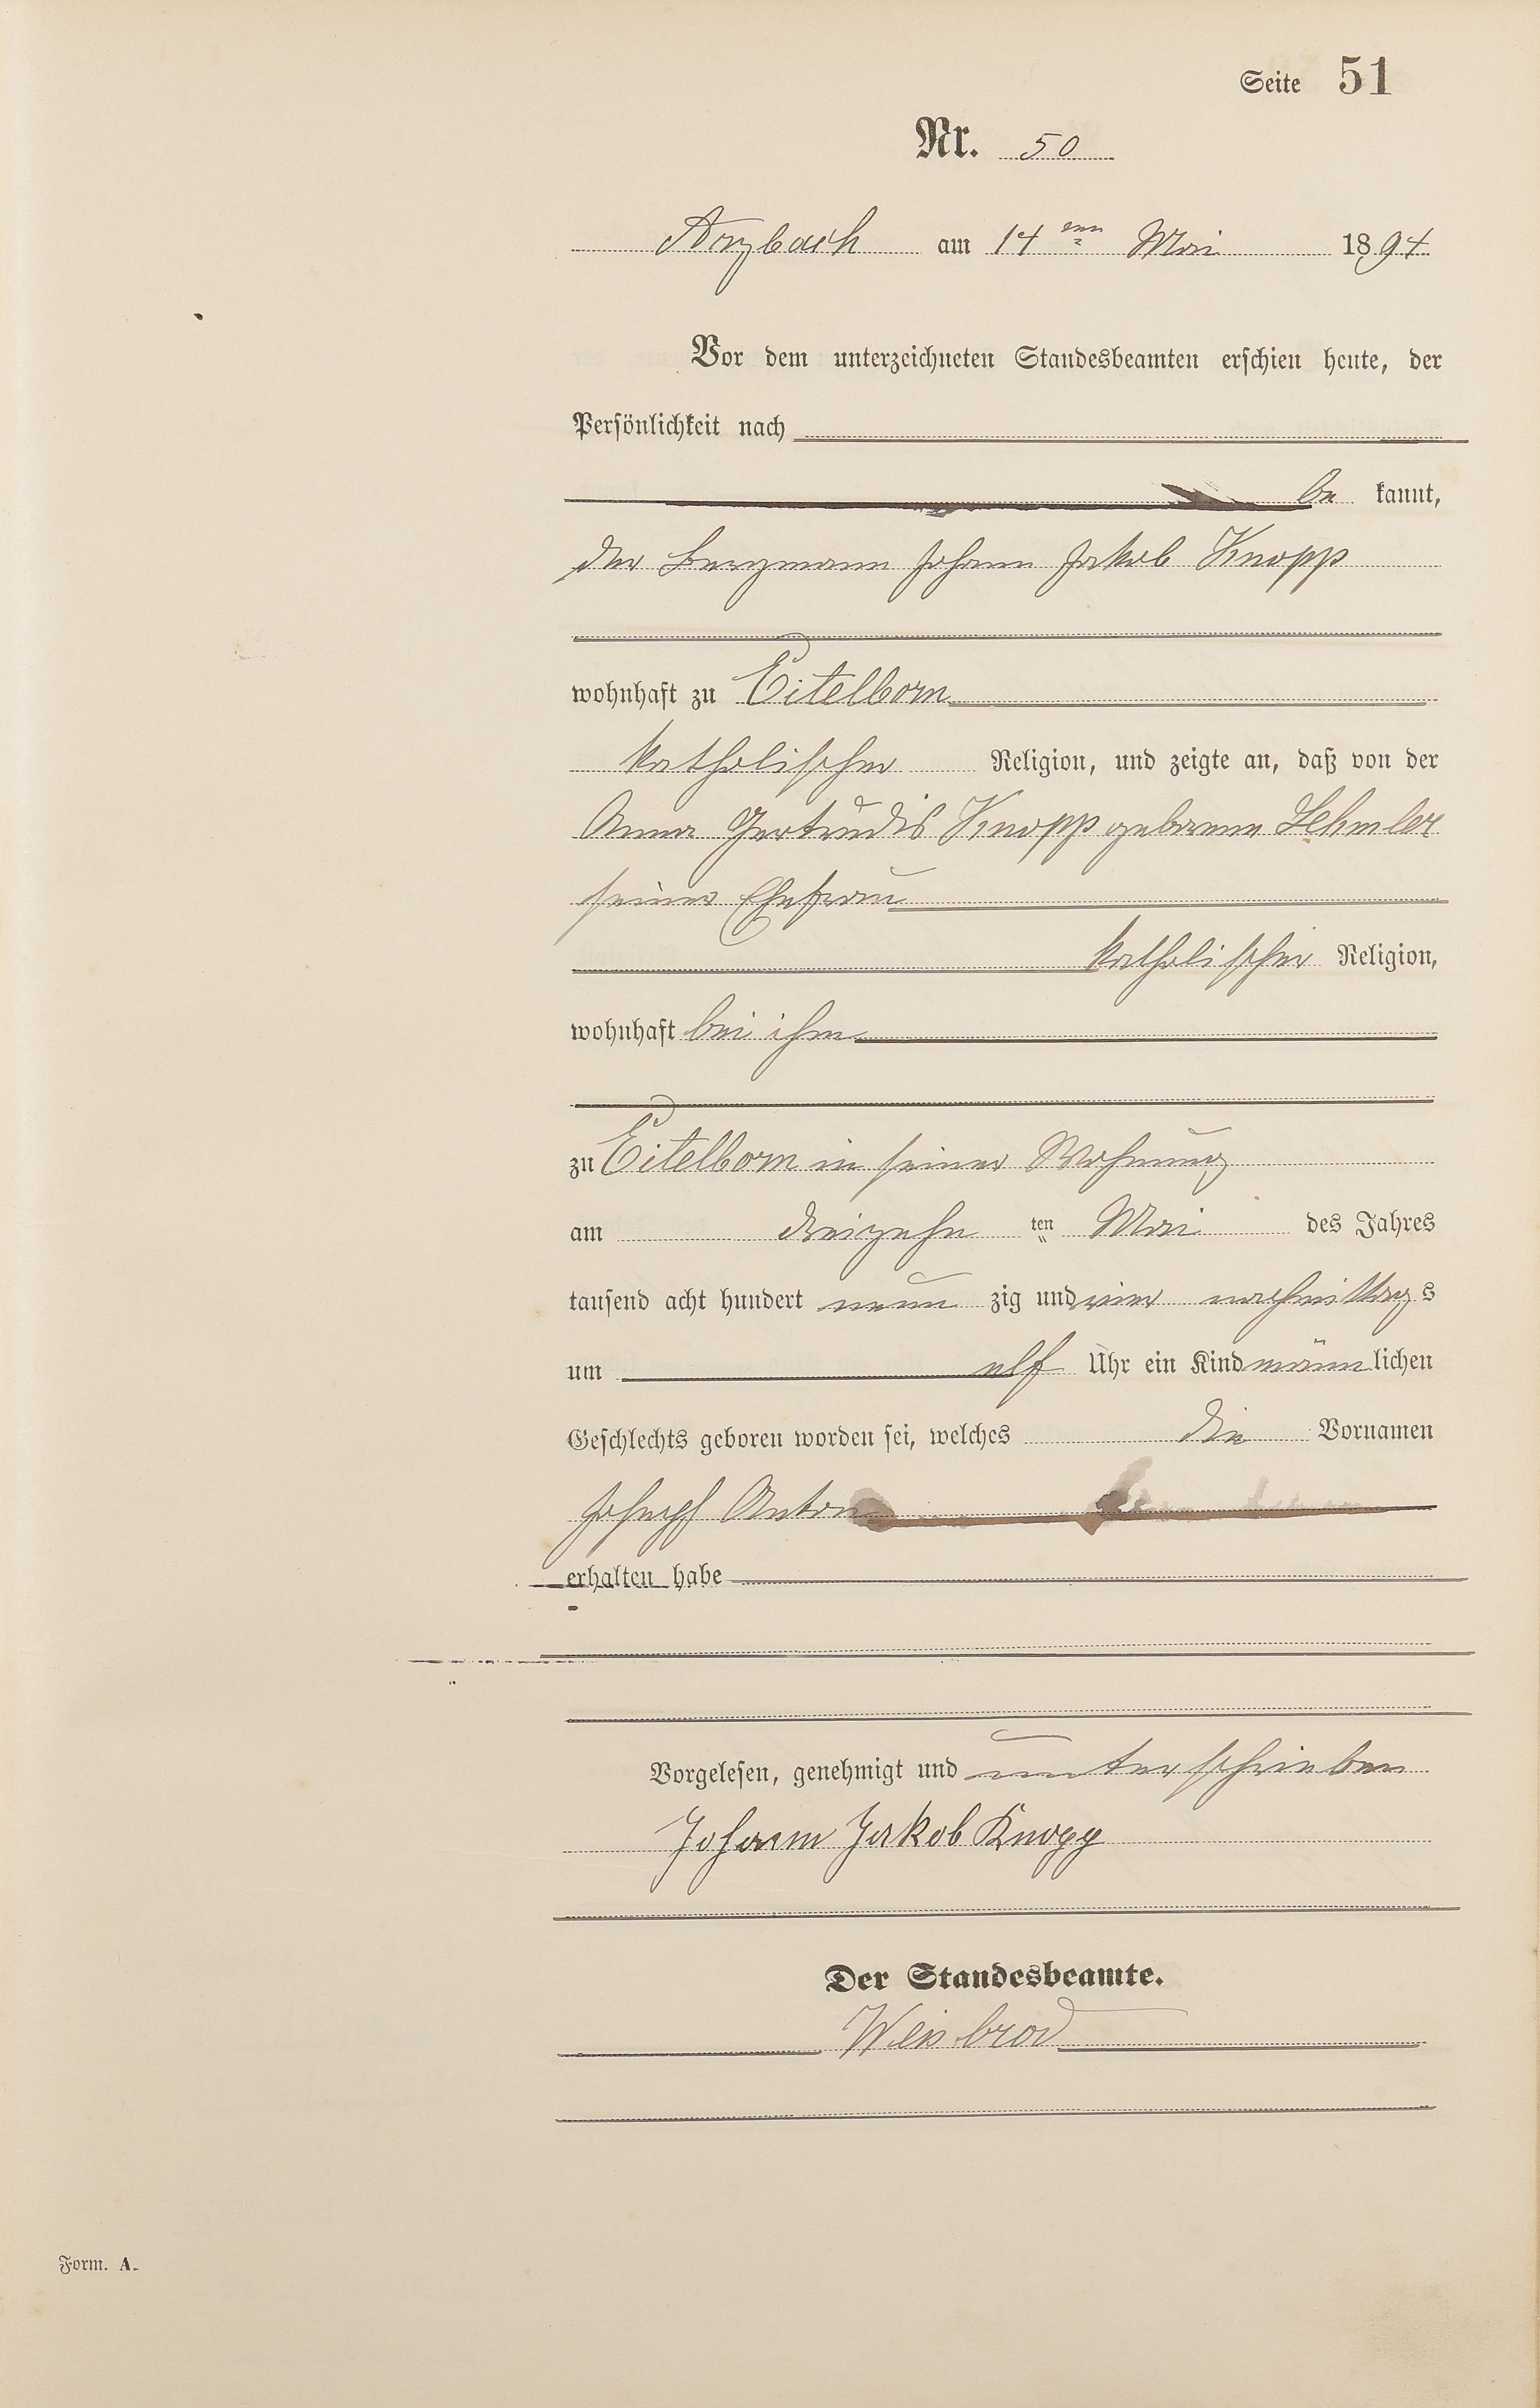 Seite 51
Nr. 50
Arzbach am 14ten Mai 1894
Vor dem unterzeichneten Standesbeamten erschien heute, der
Persönlichkeit nach
be kannt,
der Bergmann Johann Jakob Knopp
wohnhaft zu Eitelborn
katholischer Religion, und zeigte an, daß von der
Anna Gertrudis Knopp geborene Lehmler
seiner Ehefrau
katholischer Religion,
wohnhaft bei ihm
zu Eitelborn in seiner Wohnung
am dreizehn ten Mai des Jahres
tausend acht hundert neun zig und vier nachmittags
um elf Uhr ein Kind männ lichen
Geschlechts geboren worden sei, welches die Vornamen
Joseph Anton
erhalten habe
Vorgelesen, genehmigt und unterschrieben
Johann Jakob Knopp
Der Standesbeamte.
Weisbrod
Form. A.